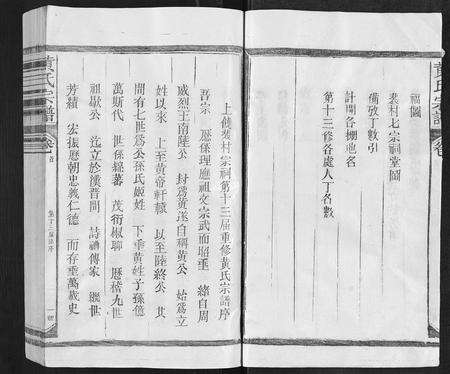 黃氏宗譜
福圖
葉村七宗祠堂圖
備攷丁數引
計開各棚地名
第十三修各處人丁名數
上饒葉村宗祠第十三屆重修黃氏宗譜序
吾宗 恩係理應祖文宗武而昭垂 緒自周
威烈王南陸公 封爲黃遂自稱黃公 始爲立
姓以來 上至黃帝軒轅 以至陸終公 其
間有七世爲公孫氏庭姓 下垂黃姓子孫億
萬斯代 世係綿蕃 茂衍椒聊 歷稽九世
祖歇公 迄立於漢晉間 詩禮傳家 繼世
芳績 宏振歷朝忠義仁德 而存垂萬歲史
黃氏宗譜 卷首
第十三屆譜序
一